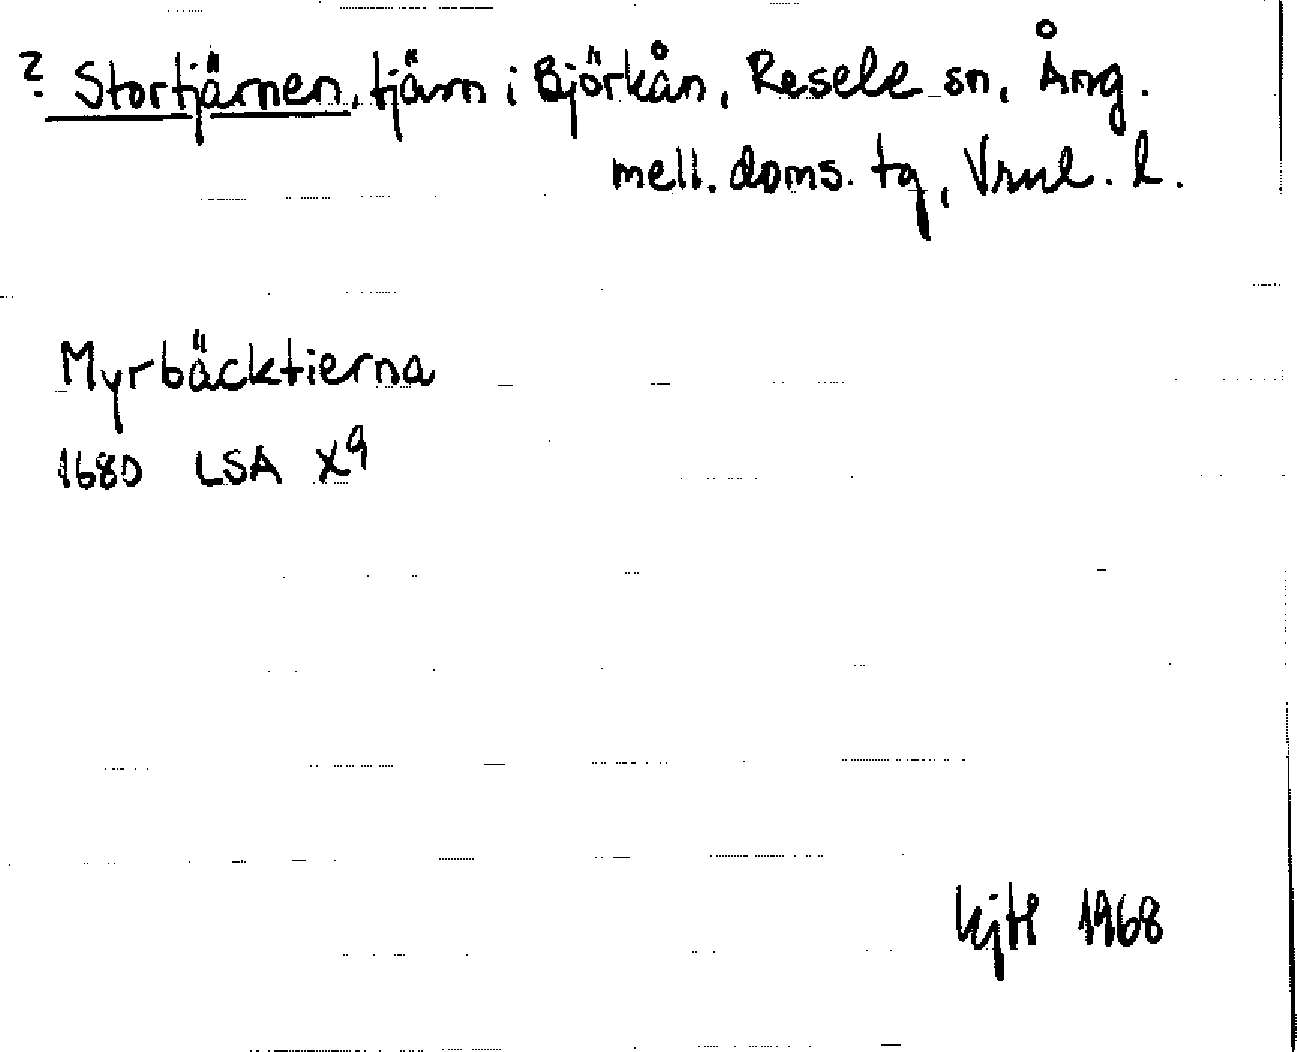 ? Stortjärnen, tjärn i Björkån, Resele sn, Ång.
mell. doms. tg, Vrnl. l.
Myrbäcktierna
1680 LSA X9
1968